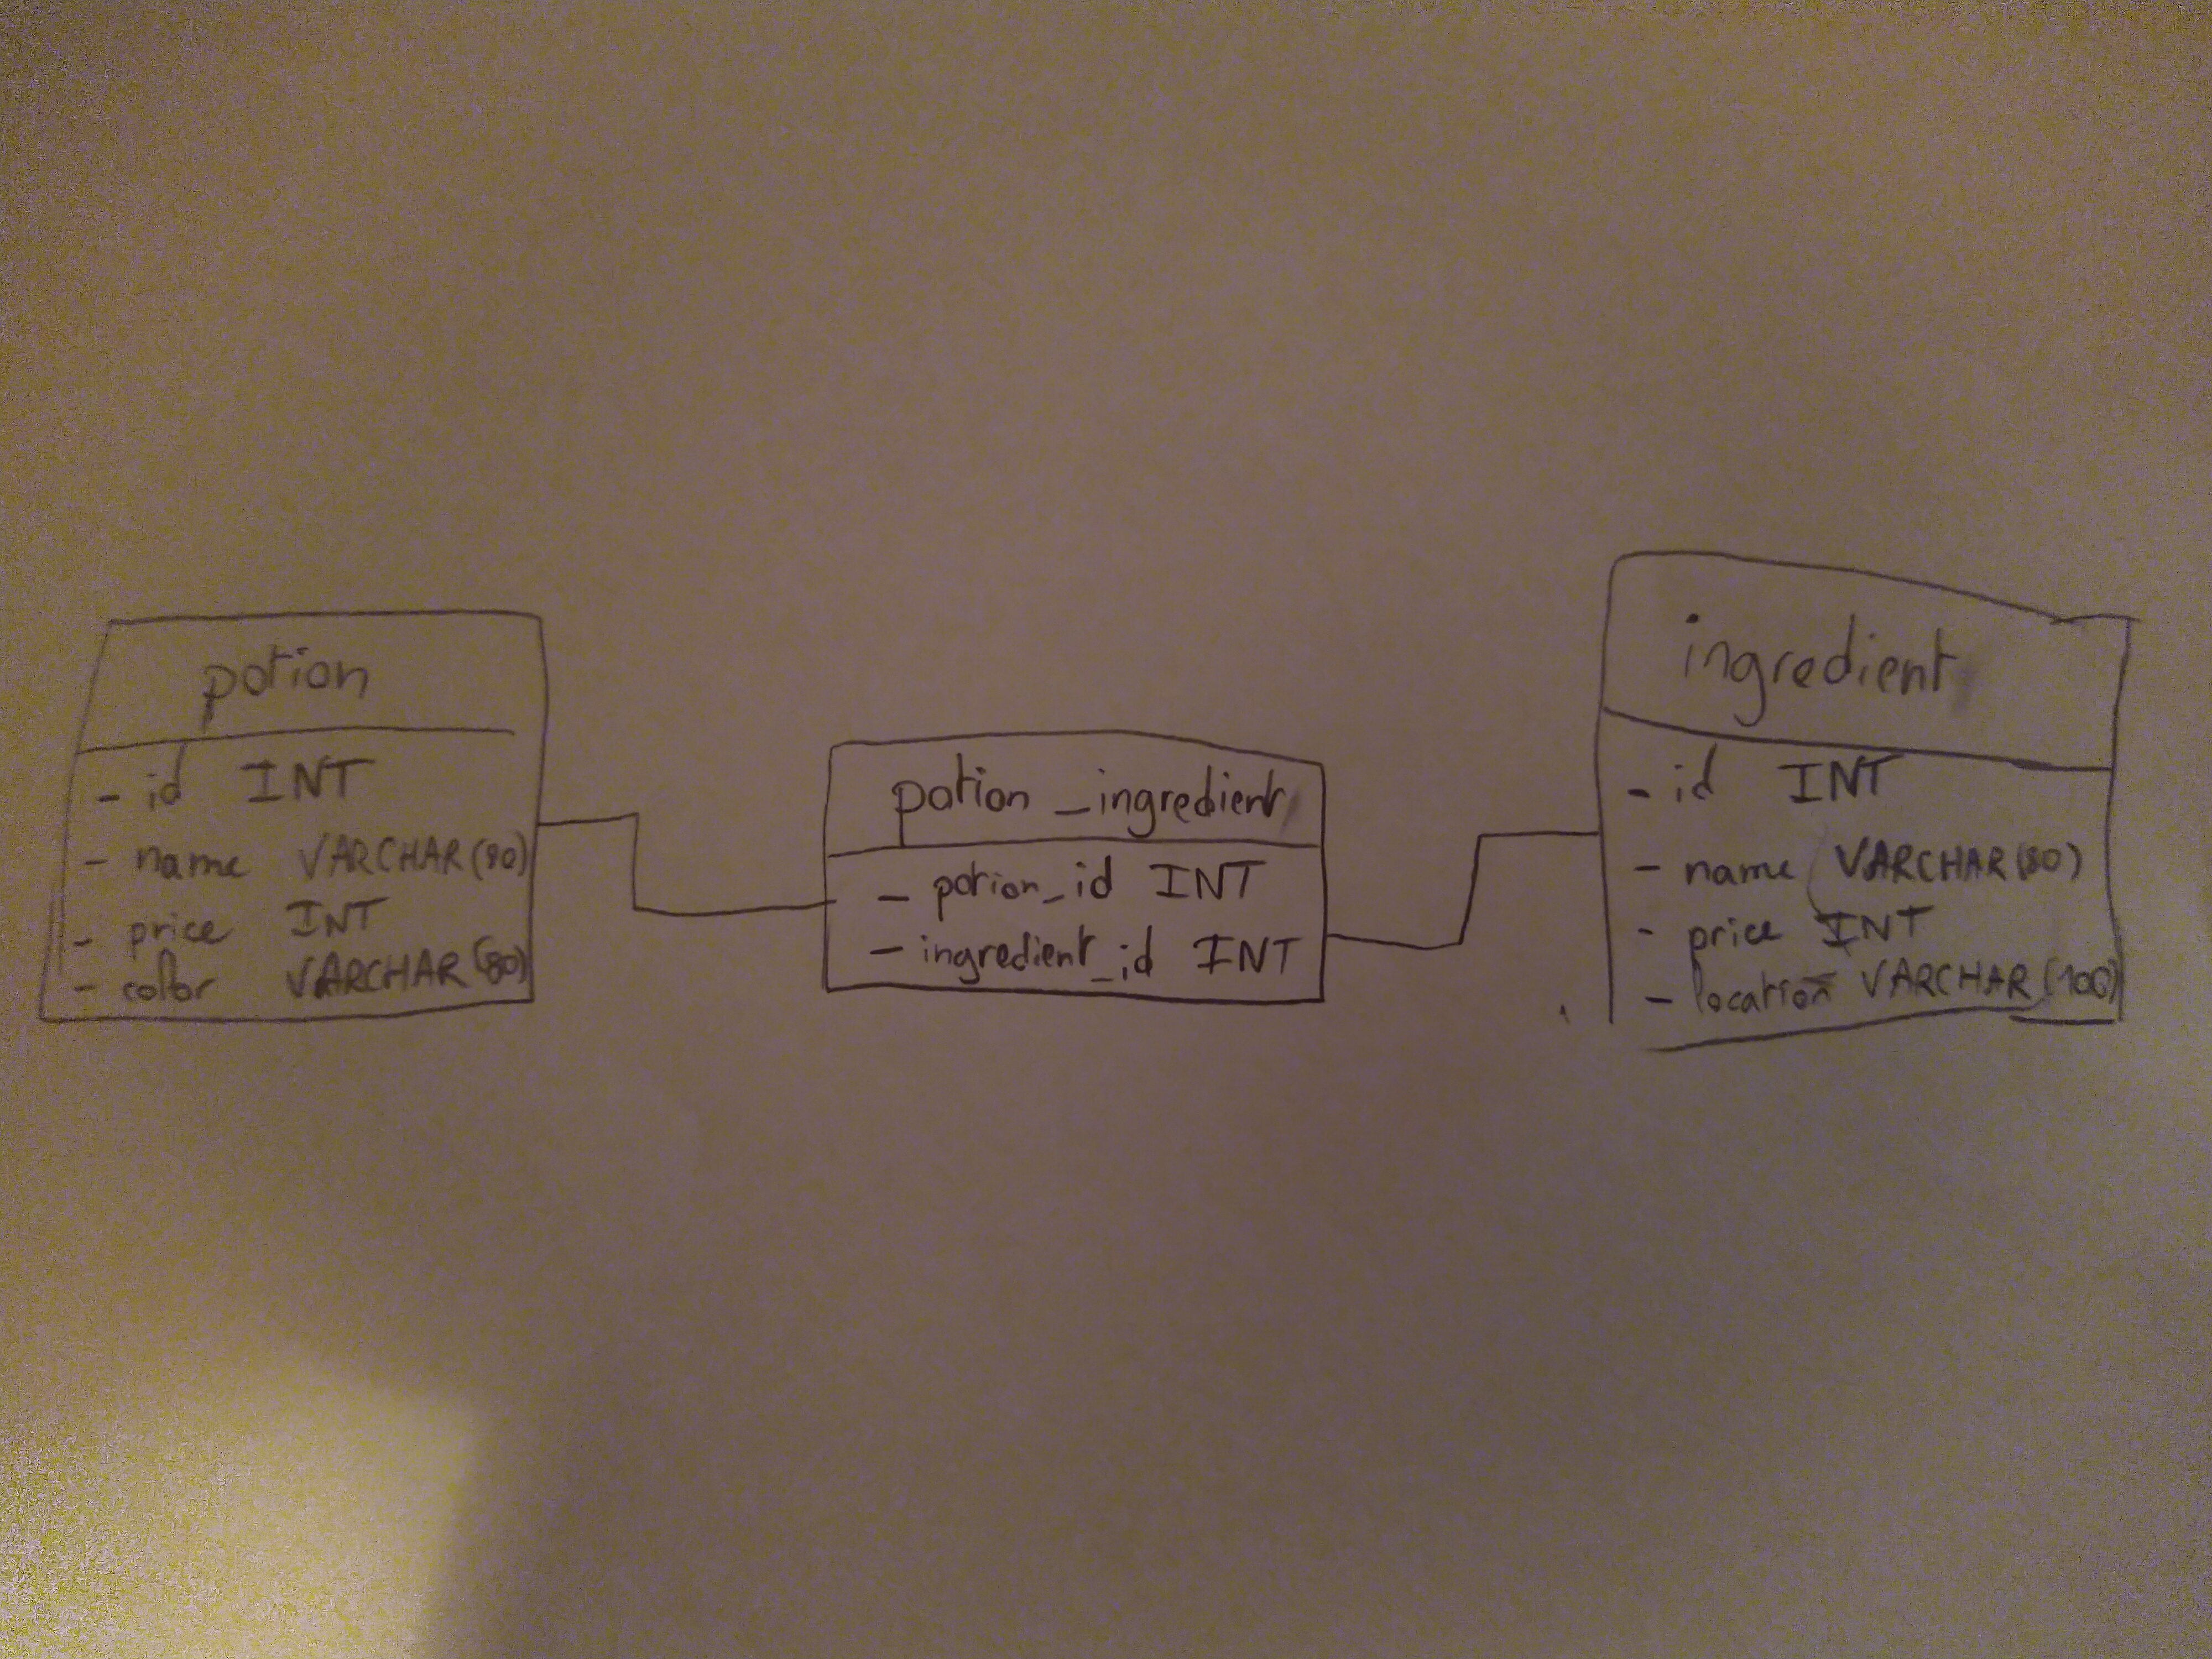 potion
- id INT
- name VARCHAR(80)
- price INT
- color VARCHAR(80)
potion_ingredient
- potion_id INT
- ingredient_id INT
ingredient
- id INT
- name VARCHAR(80)
- price INT
- location VARCHAR(100)